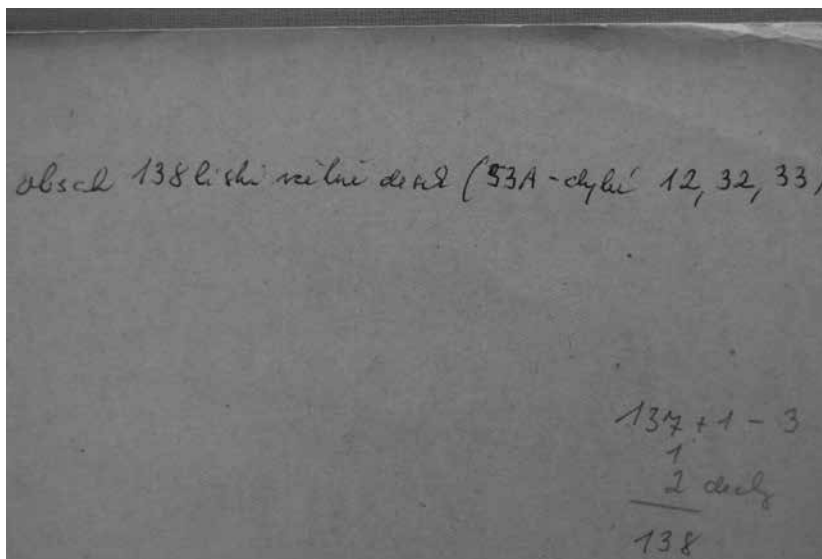 obsah 138 listů včetně desek (53A - chybí 12, 32, 33)
137 + 1 - 3
1
2 desky
138